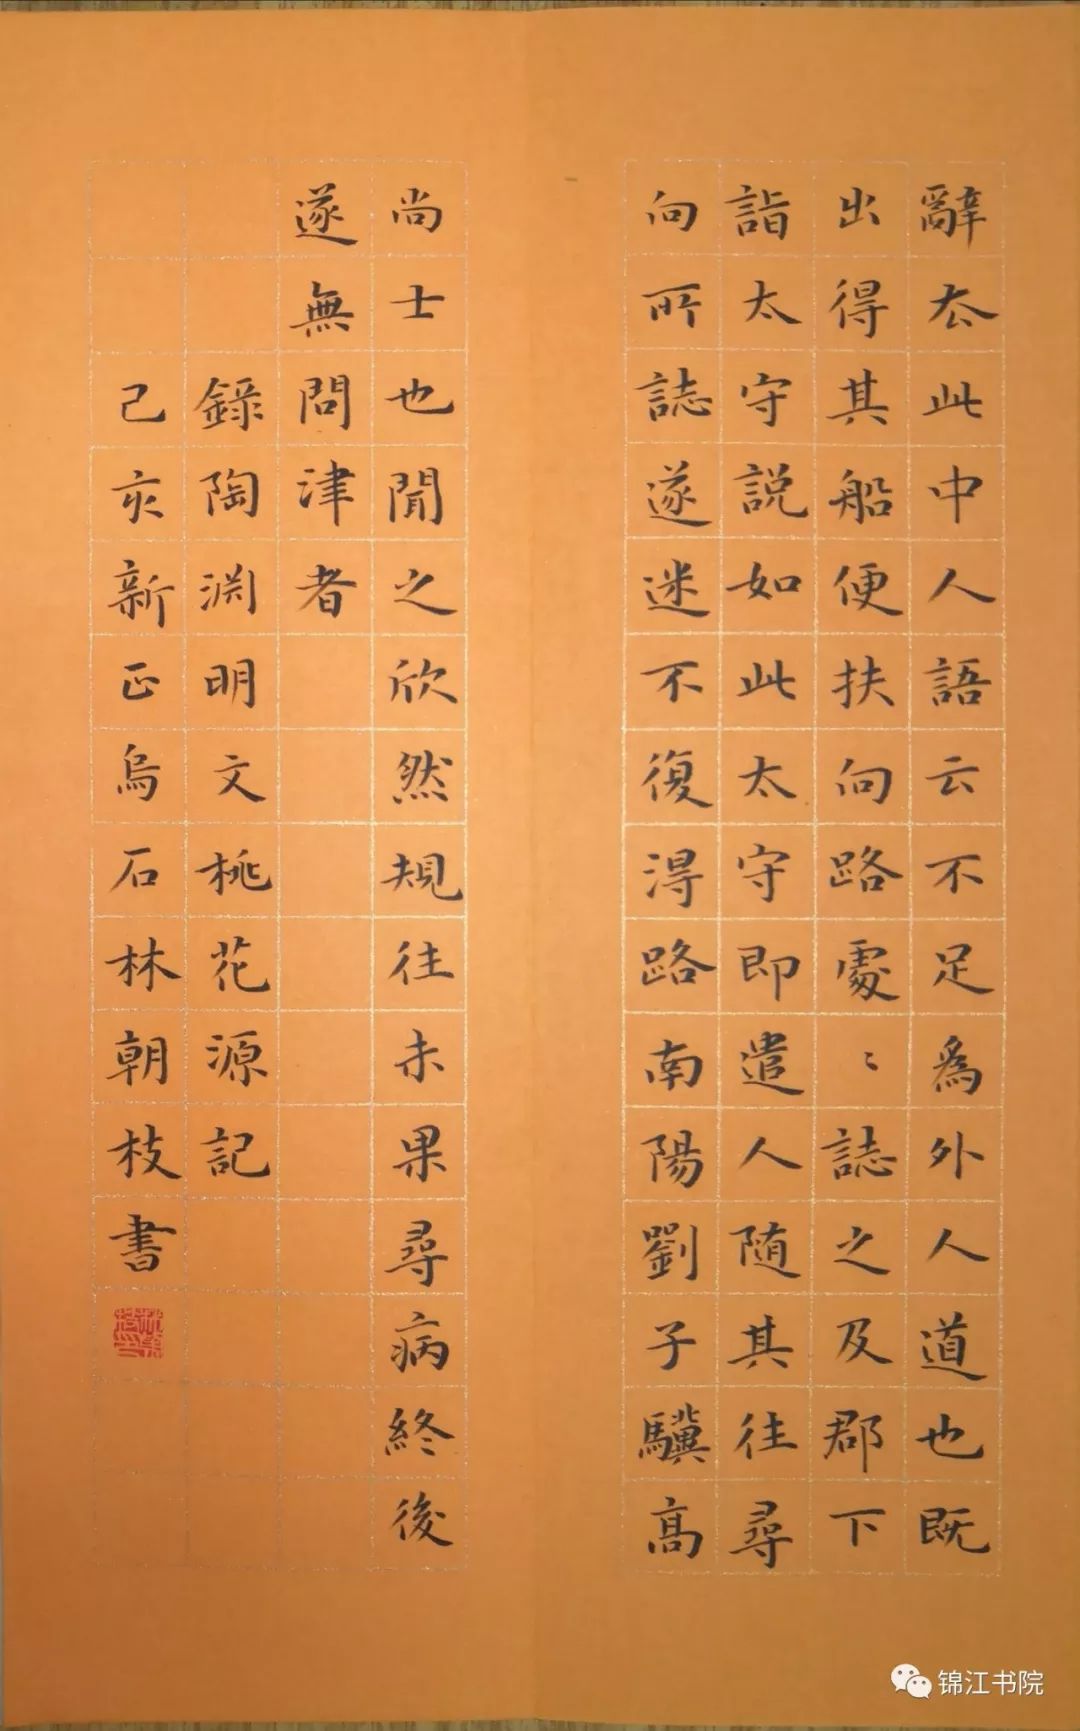 辭去此中人語云不足爲外人道也既
出得其船便扶向路處〻誌之及郡下
詣太守説如此太守即遣人随其往尋
向所誌遂迷不復得路南陽劉子驥高
尚士也聞之欣然規往未果尋病終後
遂無問津者
錄陶渊明文桃花源記
己亥新正烏石林朝枝書
锦江书院